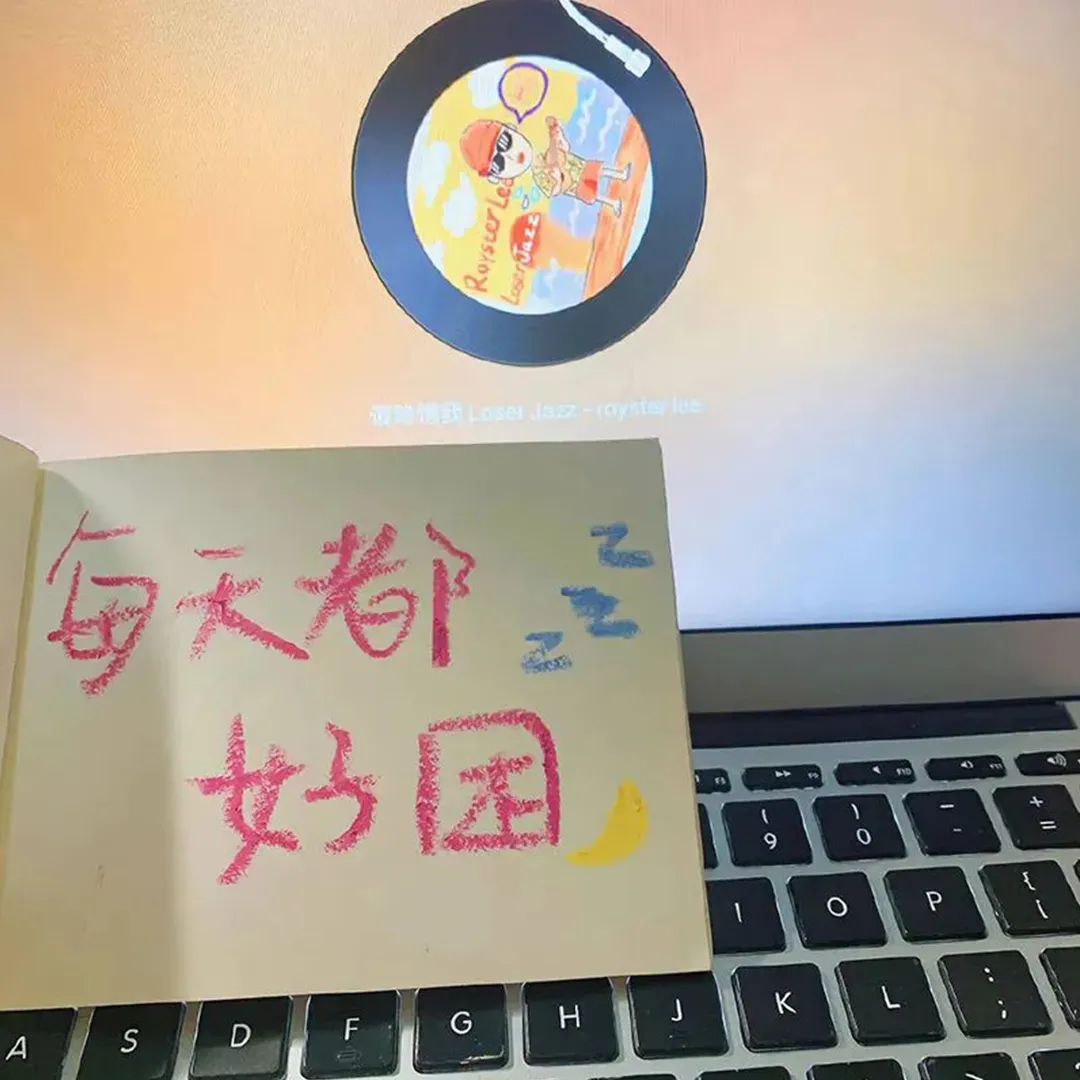 Royster Lee
Loser Jazz
Loser Jazz - royster lee
每天都
z
z
z
好困
F9
F10
F11
( 9
) 0
_ -
+ =
I
O
P
{ [
A
S
D
F
G
H
J
K
L
: ;